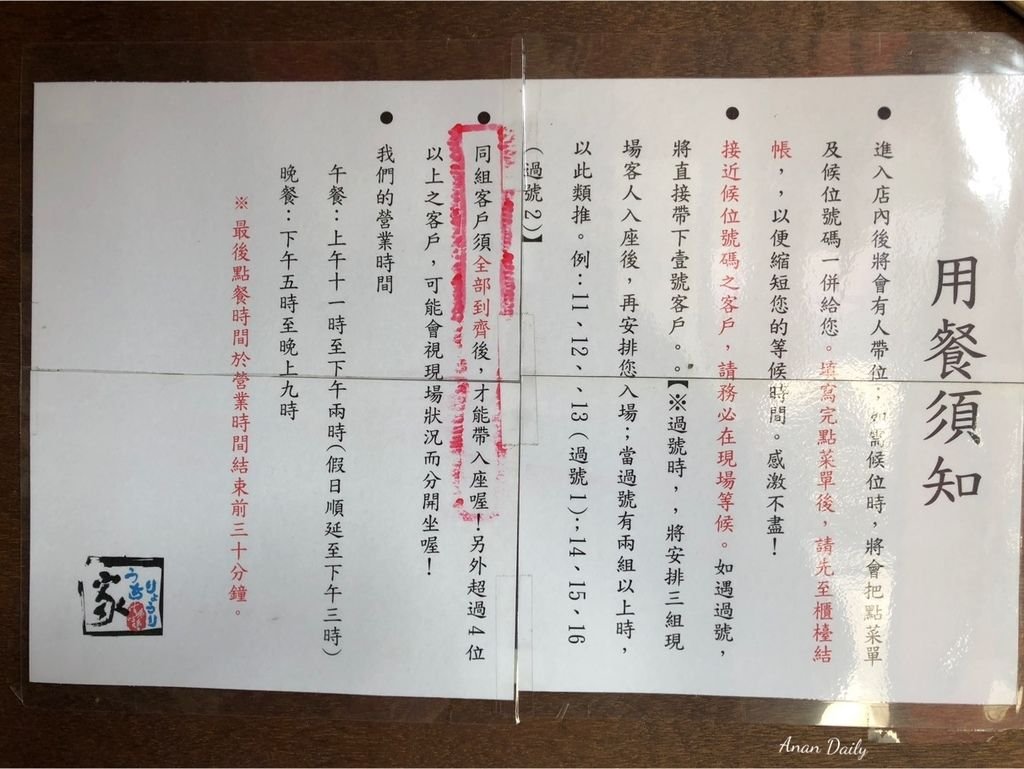 用餐須知
●進入店內後將會有人帶位；如需候位時，將會把點菜單
及候位號碼一併給您。填寫完點菜單後，請先至櫃檯結
帳，，以便縮短您的等候時間。感激不盡！
●接近候位號碼之客戶，請務必在現場等候。如遇過號，
將直接帶下壹號客戶。。【※過號時，，將安排三組現
場客人入座後，再安排您入場；當過號有兩組以上時，
以此類推。例：11、12、、13（過號1）；14、15、16
（過號2）】
●同組客戶須全部到齊後，才能帶入座喔！另外超過4位
以上之客戶，可能會視現場狀況而分開坐喔！
●我們的營業時間
午餐：上午十一時至下午兩時（假日順延至下午三時）
晚餐：下午五時至晚上九時
※ 最後點餐時間於營業時間結束前三十分鐘。
りょうり
うち
家
Anan Daily